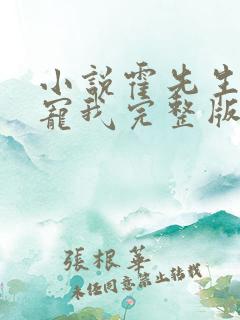 小説霍先生
寵我完整版
張根華
未任同意禁止轉載